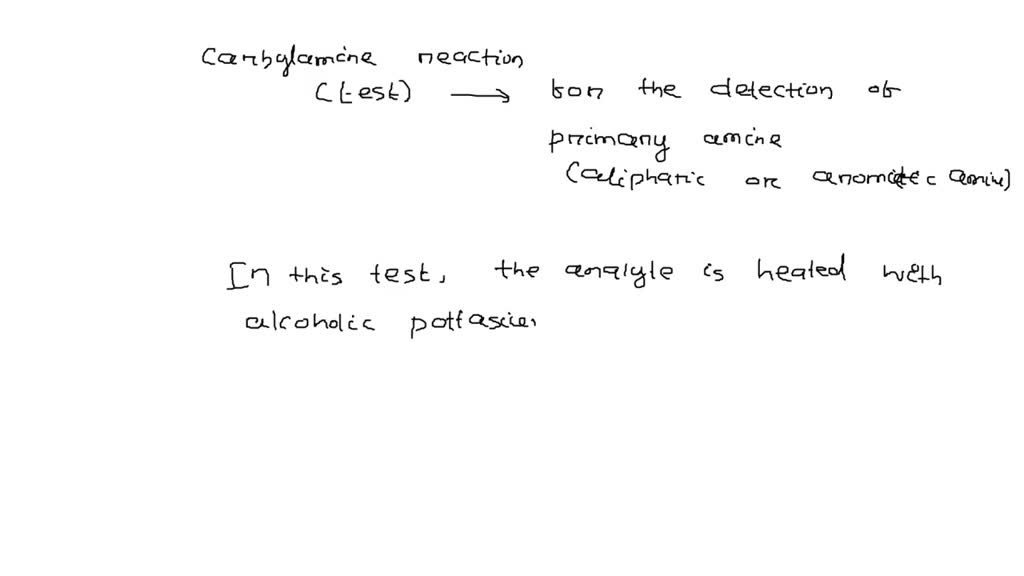 Carbylamine reaction
(test) → for the detection of
primary amine
(aliphatic or aromatic amine)
In this test, the analyte is heated with
alcoholic pottassiu